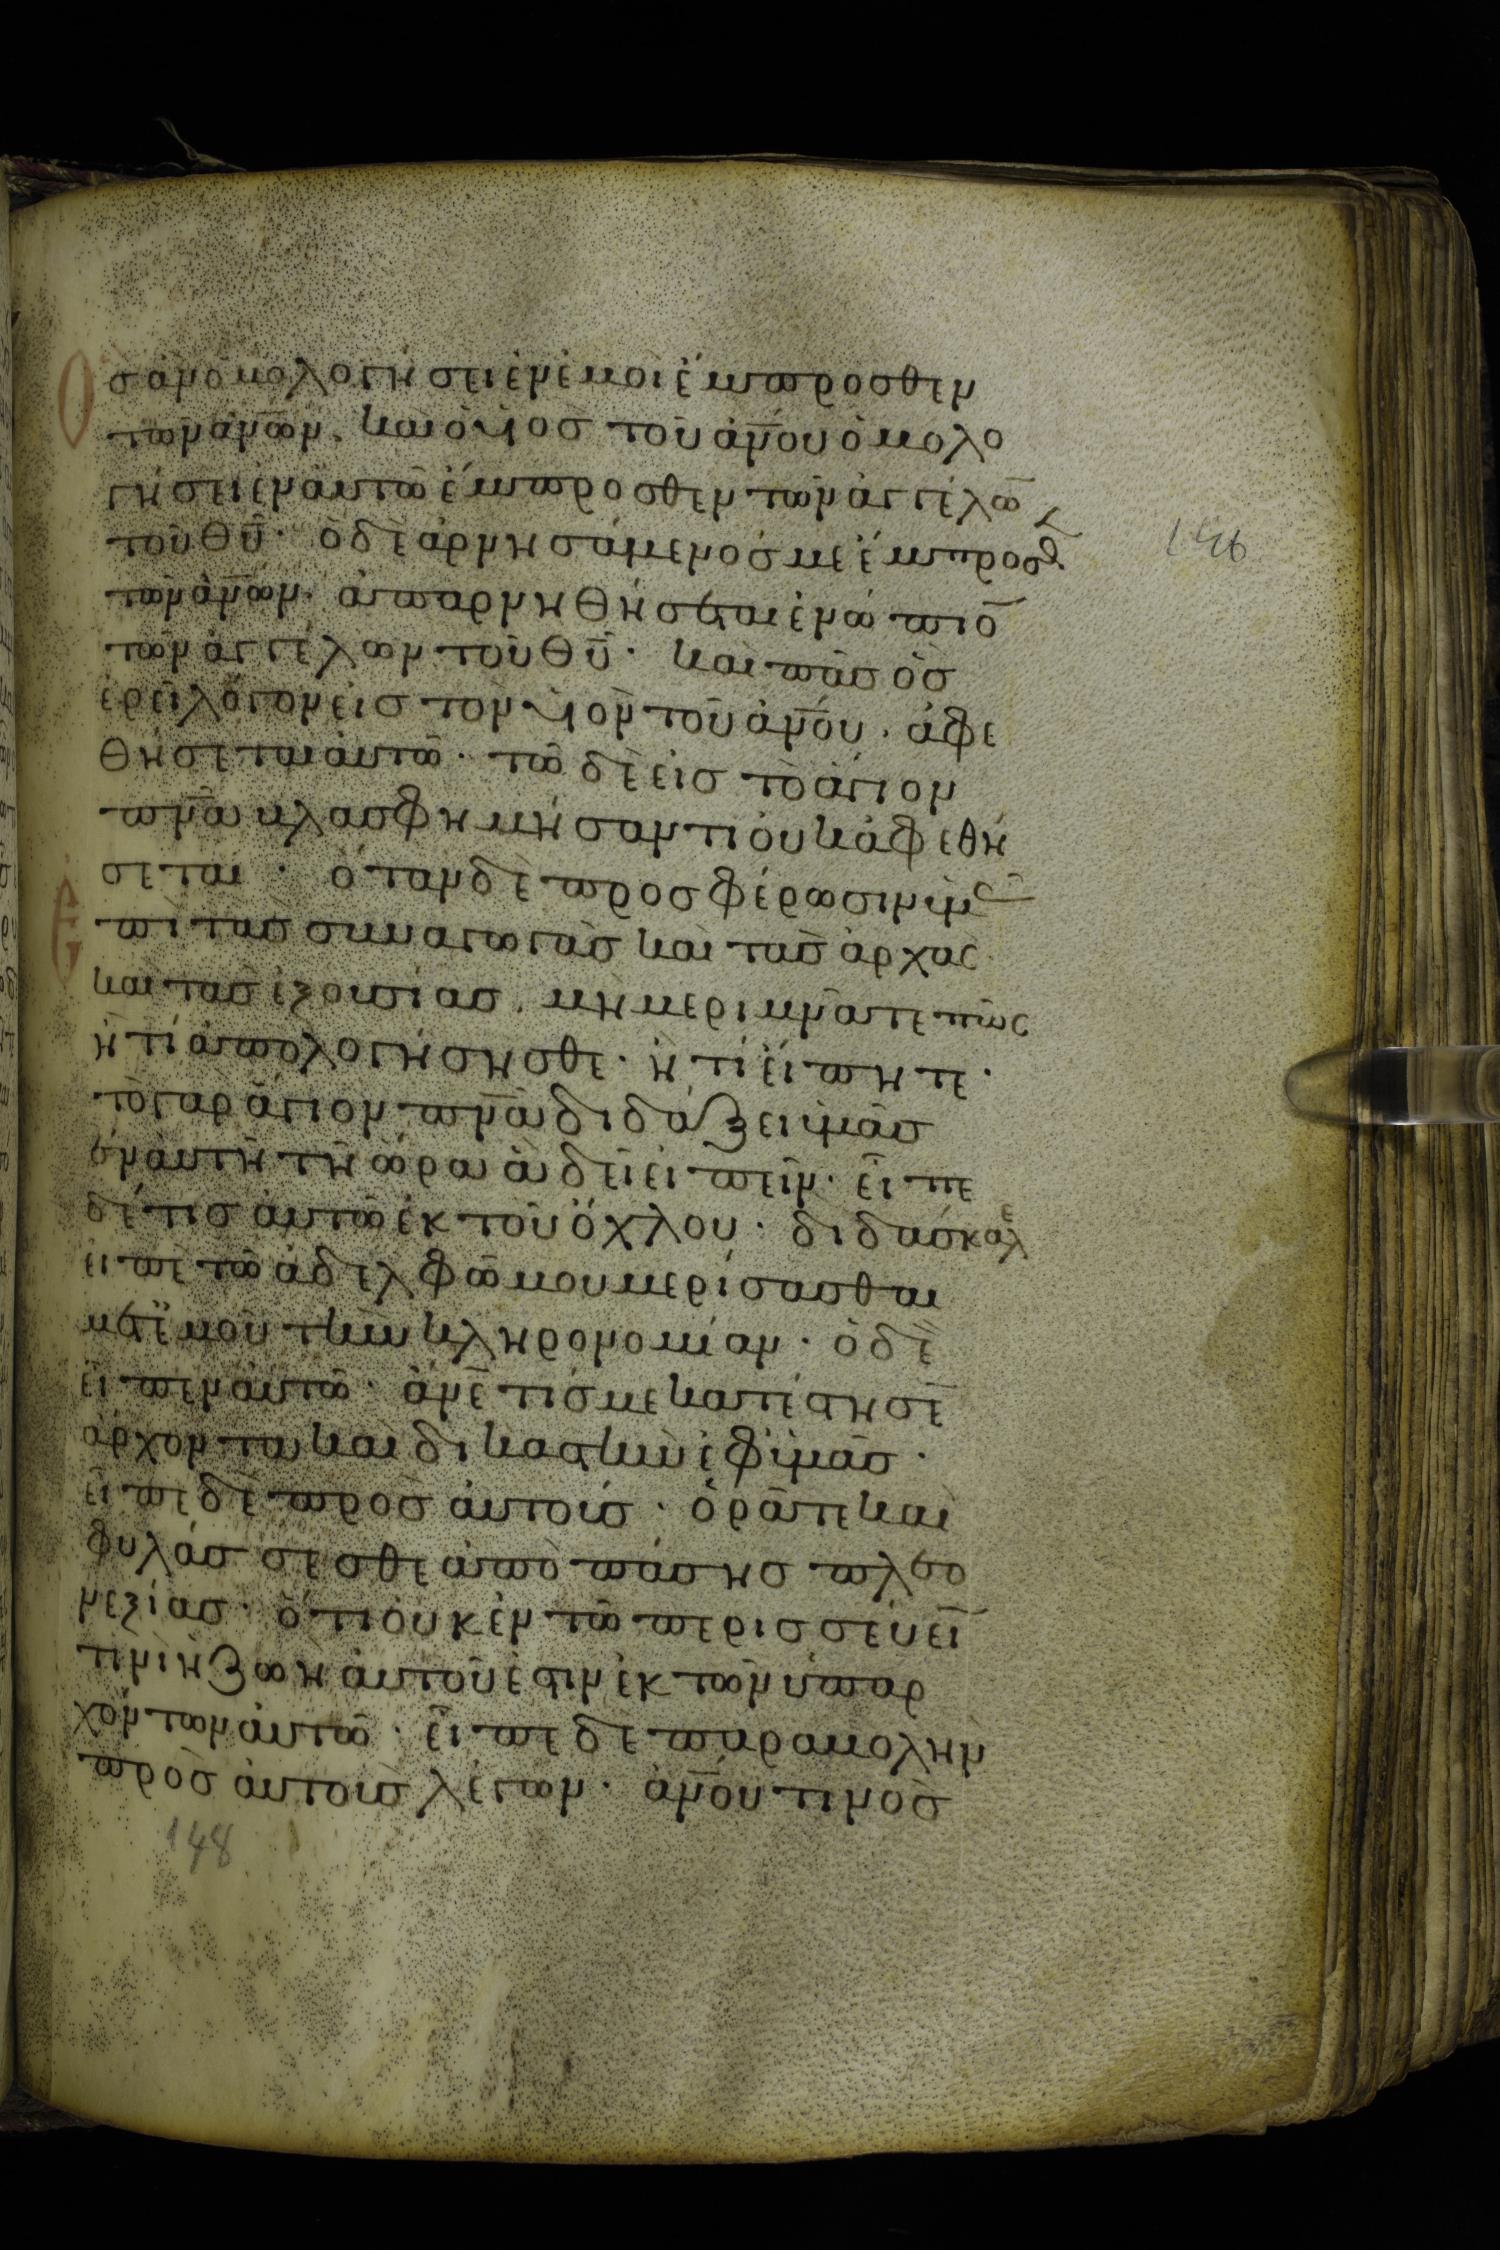 Ὃσ ἂν ὁμολογήσει ἐν ἐμοὶ ἔμπροσθεν
τῶν ἀν̅ων. καὶ ὁ υἱὸσ τοῦ ἀν̅ου ὁμολο
γήσει ἐν αὐτῶ ἔμπροσθεν τῶν ἀγγέλω̅
τοῦ θ̅υ. ὁ δὲ ἀρνησάμενόσ με ἔμπροσθ
τῶν ἀν̅ων. ἀπαρνηθήσεται ἐνώπιο̅
τῶν ἀγγέλων τοῦ θ̅υ. καὶ πᾶσ ὃσ
ἐρεῖ λόγον εἰσ τὸν υἱὸν τοῦ ἀν̅ου. ἀφε
θήσεται αὐτῶ. τῶ δὲ εἰσ τὸ ἅγιον
πν̅α βλασφημήσαντι οὐκ ἀφεθή
σεται. ὅταν δὲ προσφέρωσιν ὑμᾶς
Ἐπὶ τὰσ συναγωγὰσ καὶ τὰσ ἀρχὰς
καὶ τὰσ ἐξουσίασ. μὴ μεριμνᾶτε πῶς
ἢ τί ἀπολογήσησθε. ἢ τί εἴπητε.
τὸ γὰρ ἅγιον πν̅α διδάξει ὑμᾶσ
ἐν αὐτῆ τῆ ὥρα ἃ δεῖ εἰπεῖν. εἶπε
δέ τισ αὐτῶ ἐκ τοῦ ὄχλου. διδάσκαλε
εἰπὲ τῶ ἀδελφῶ μου μερίσασθαι
μετ' ἐμοῦ τὴν κληρονομίαν. ὁ δὲ
εἶπεν αὐτῶ. ἄν̅ε τίσ με κατέστησε̅
ἄρχοντα καὶ δικαστὴν ἐφ' ὑμᾶσ.
εἶπε δὲ πρὸσ αὐτούσ. ὁρᾶτε καὶ
φυλάσσεσθε ἀπὸ πάσησ πλεο
νεξίασ. ὅτι οὐκ ἐν τῶ περισσεύει̅
τινὶ ἡ ζωὴ αὐτοῦ ἐστιν ἐκ τῶν ὑπαρ
χόντων αὐτῶ. εἶπε δὲ παραβολὴν
πρὸσ αὐτοὺσ λέγων. ἀν̅ου τινὸσ
148